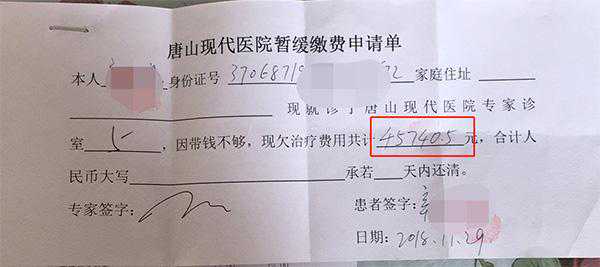 唐山现代医院暂缓缴费申请单
本人 身份证号 3706871 2 家庭住址
现就诊于唐山现代医院专家诊
室 5 ,因带钱不够,现欠治疗费用共计 45740.5 元,合计人
民币大写 承若 天内还清。
专家签字: 患者签字:
日期: 2018.11.29